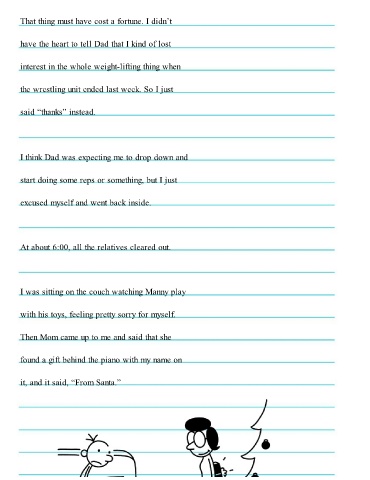 That thing must have cost a fortune. I didn't
have the heart to tell Dad that I kind of lost
interest in the whole weight-lifting thing when
the wrestling unit ended last week. So I just
said “thanks” instead.
I think Dad was expecting me to drop down and
start doing some reps or something, but I just
excused myself and went back inside.
At about 6:00, all the relatives cleared out.
I was sitting on the couch watching Manny play
with his toys, feeling pretty sorry for myself.
Then Mom came up to me and said that she
found a gift behind the piano with my name on
it, and it said, “From Santa.”